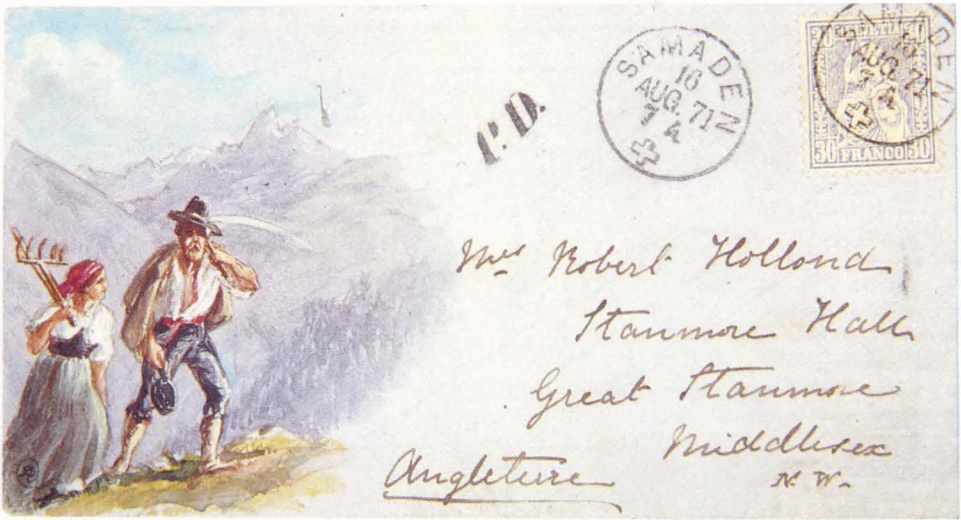 SAMADEN
16
AUG. 71
7 A
P. D.
SAMADEN
16
AUG. 71
7 A
30 30
30 FRANCO 30
Mrs Robert Hollond
Stanmore Hall
Great Stanmore
Middlesex
N. W.
Angleterre